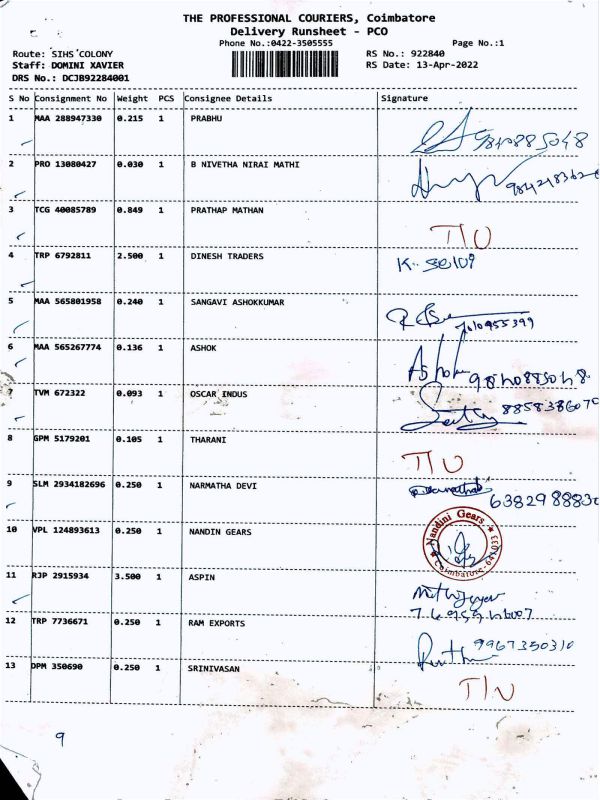 THE PROFESSIONAL COURIERS, Coimbatore
Delivery Runsheet - PCO
Phone No.:0422-3505555
Page No.:1
Route: SIHS COLONY
RS No.: 922840
Staff: DOMINI XAVIER
RS Date: 13-Apr-2022
DRS No.: DCJB92284001
S No Consignment No Weight PCS Consignee Details Signature
1 MAA 288947330 0.215 1 PRABHU 9840885048
2 PRO 13080427 0.030 1 B NIVETHA NIRAI MATHI
3 TCG 40085789 0.849 1 PRATHAP MATHAN
4 TRP 6792811 2.500 1 DINESH TRADERS K.
5 MAA 565801958 0.240 1 SANGAVI ASHOKKUMAR
6 MAA 565267774 0.136 1 ASHOK Ashok 9840885048
7 TVM 672322 0.093 1 OSCAR INDUS
8 GPM 5179201 0.105 1 THARANI
9 SLM 2934182696 0.250 1 NARMATHA DEVI
10 VPL 124893613 0.250 1 NANDIN GEARS Nandini Gears Coimbatore-641 033
11 RJP 2915934 3.500 1 ASPIN
12 TRP 7736671 0.250 1 RAM EXPORTS 9967350310
13 DPM 350690 0.250 1 SRINIVASAN
9